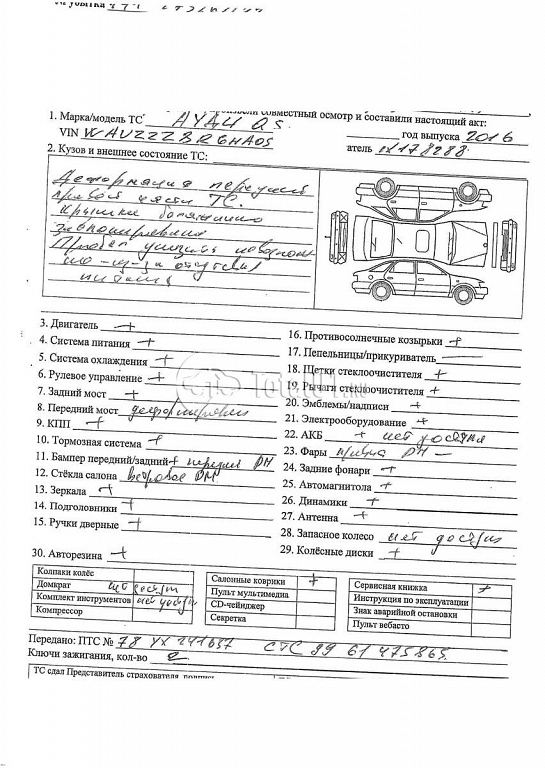 произвели совместный осмотр и составили настоящий акт:
1. Марка/модель ТС АУДИ Q5
VIN WAUZZZ8R6HA05 год выпуска 2016
атель 178288
2. Кузов и внешнее состояние ТС:
Деформация передней
правой части ТС.
крышка багажника
заблокирована
Пробег
из-за отсутствия
питания
3. Двигатель +
4. Система питания +
5. Система охлаждения +
6. Рулевое управление +
7. Задний мост +
8. Передний мост деформирован
9. КПП +
10. Тормозная система +
11. Бампер передний/задний + передний РМ
12. Стёкла салона ветровое РМ
13. Зеркала +
14. Подголовники +
15. Ручки дверные +
16. Противосолнечные козырьки +
17. Пепельницы/прикуриватель
18. Щетки стеклоочистителя +
19. Рычаги стеклоочистителя +
20. Эмблемы/надписи +
21. Электрооборудование +
22. АКБ + нет доступа
23. Фары правая РМ —
24. Задние фонари +
25. Автомагнитола +
26. Динамики +
27. Антенна +
28. Запасное колесо нет доступа
29. Колёсные диски +
30. Авторезина +
Колпаки колёс
Домкрат нет доступа
Комплект инструментов нет доступа
Компрессор
Салонные коврики +
Пульт мультимедиа
CD-чейнджер
Секретка
Сервисная книжка +
Инструкция по эксплуатации
Знак аварийной остановки
Пульт вебасто
Передано: ПТС № 78 УХ 241657 СТС 99 61 475865
Ключи зажигания, кол-во 2
ТС сдал Представитель страхователя, подпись